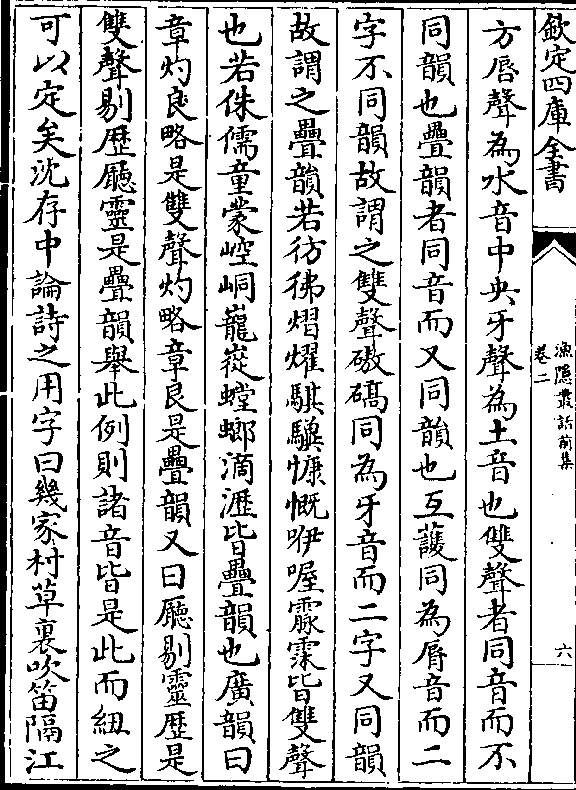 欽定四庫全書
漁隱叢話前集
卷二
六
方唇聲為水音中央牙聲為土音也雙聲者同音而不
同韻也疊韻者同音而又同韻也互護同為唇音而二
字不同韻故謂之雙聲磝碻同為牙音而二字又同韻
故謂之疊韻若彷彿熠燿騏驥慷慨咿喔霡霂皆雙聲
也若侏儒童蒙崆峒巃嵸螳螂滴瀝皆疊韻也廣韻曰
章灼良略是雙聲灼略章良是疊韻又曰廳剔靈歴是
雙聲剔歴廳靈是疊韻舉此例則諸音皆是此而紐之
可以定矣沈存中論詩之用字曰幾家村草裏吹笛隔江